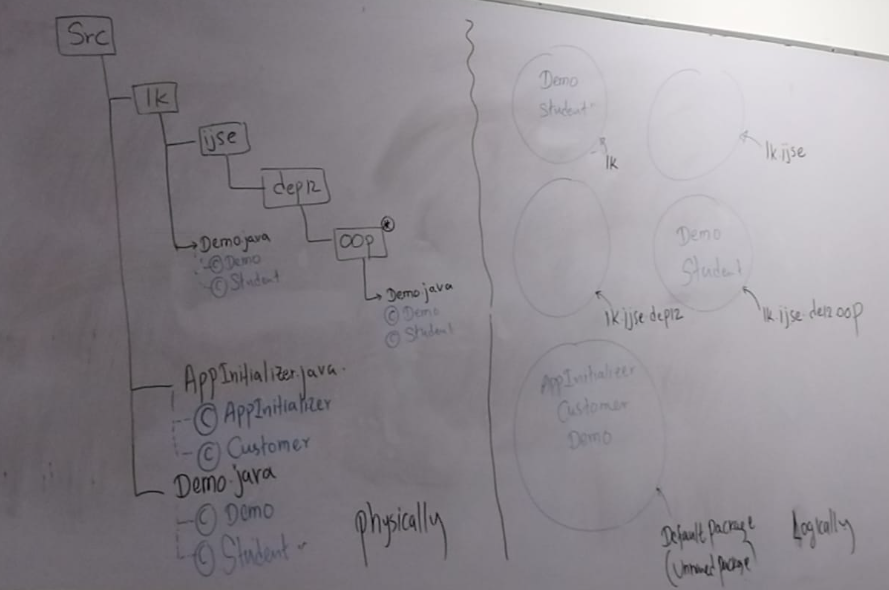 Src
lk
ijse
dep12
OOP
Demo.java
© Demo
© Student
Demo.java
© Demo
© Student
AppInitializer.java
© AppInitializer
© Customer
Demo.java
© Demo
© Student
physically
Demo
Student
lk
lk ijse
lk ijse dep12
Demo
Student
lk ijse de12 OOP
AppInitializer
Customer
Demo
Default package
(Unnamed package)
Logically